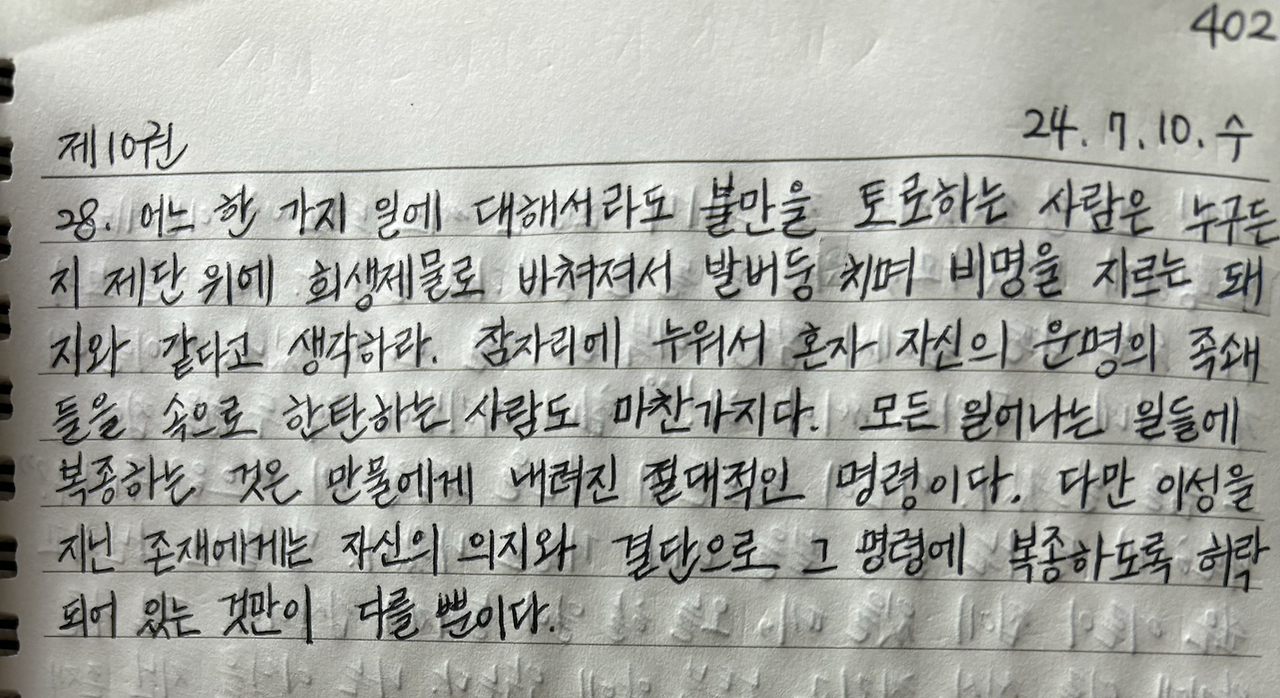 402
제10권 24. 7. 10. 수
28. 어느 한 가지 일에 대해서라도 불만을 토로하는 사람은 누구든
지 제단 위에 희생제물로 바쳐져서 발버둥 치며 비명을 지르는 돼
지와 같다고 생각하라. 잠자리에 누워서 혼자 자신의 운명의 족쇄
들을 속으로 한탄하는 사람도 마찬가지다. 모든 일어나는 일들에
복종하는 것은 만물에게 내려진 절대적인 명령이다. 다만 이성을
지닌 존재에게는 자신의 의지와 결단으로 그 명령에 복종하도록 허락
되어 있는 것만이 다를 뿐이다.